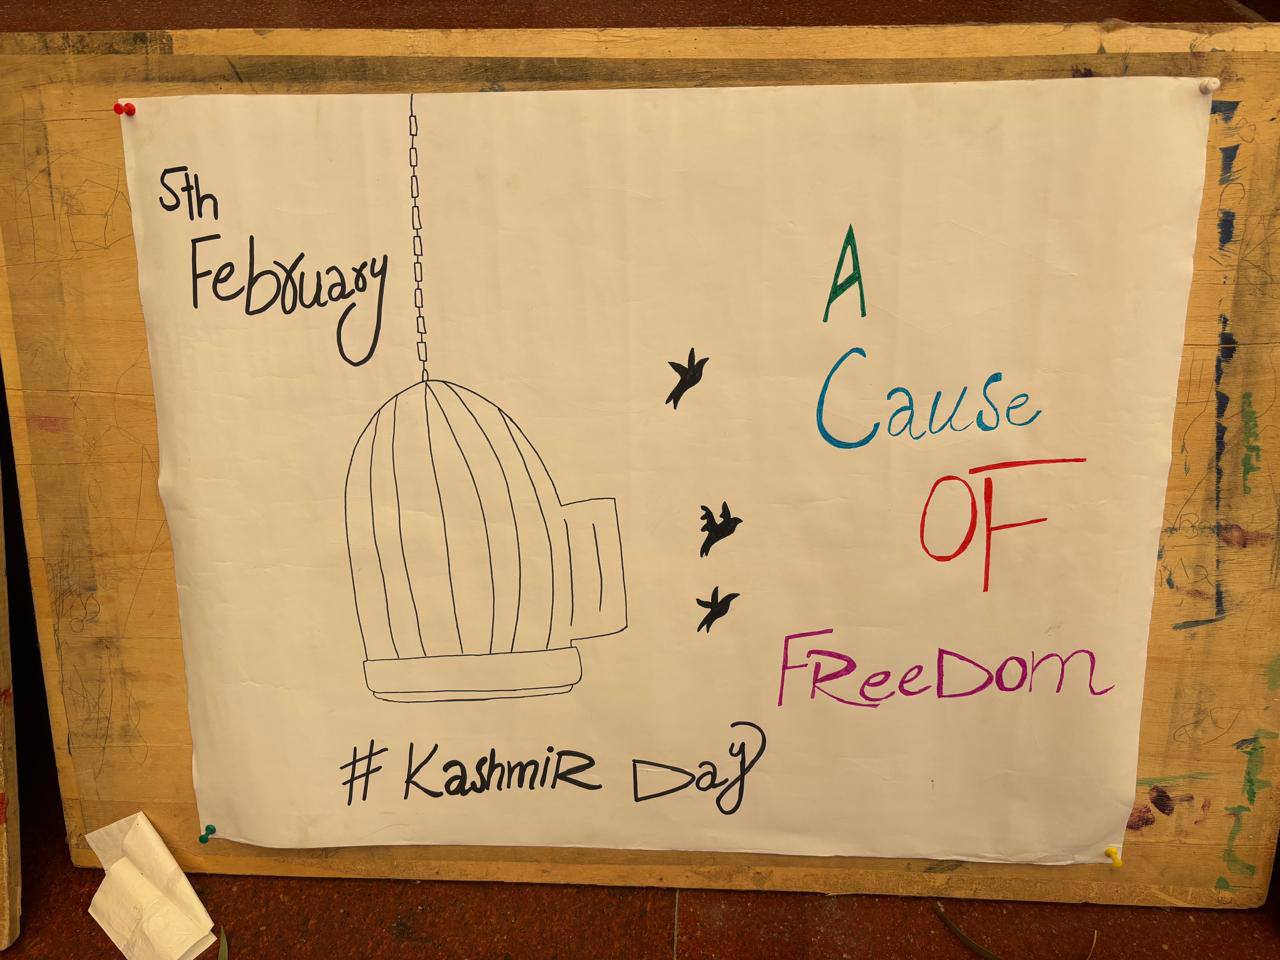 5th
February
A
Cause
OF
FReeDom
# KashmiR Day